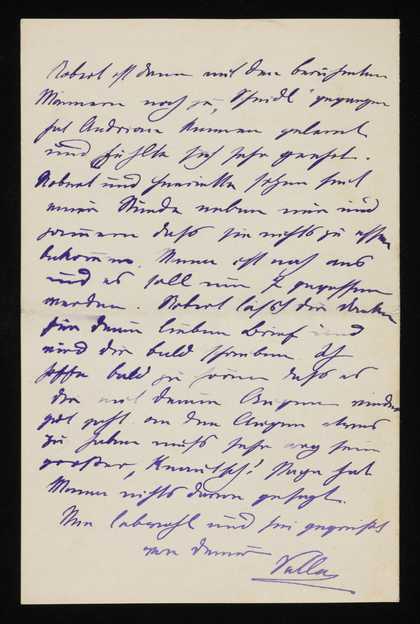 Robert ist dann mit den berühmten
Männern noch zu "Speidl" gegangen
hat Andrian kennen gelernt
und fühlte sich sehr geehrt.
Robert und Henriette sitzen seit
einer Stunde neben mir und
jammern daß sie nichts zu essen
bekommen. Mama ist noch aus
und es soll um 7 gegessen
werden. Robert läßt dir danken
für deinen lieben Brief und
wird dir bald schreiben. Ich
hoffe bald zu hören daß es
dir mit deinen Augen wieder
gut geht an den Augen etwas
zu haben muß sehr arg sein
großer, Papa hat
Mama nichts davon gesagt.
Nun lebewohl und sei gegrüßt
von deiner